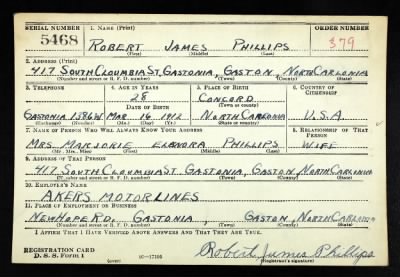 SERIAL NUMBER 1. NAME (Print) ORDER NUMBER
5468 ROBERT JAMES PHILLIPS 379
(First) (Middle) (Last)
2. ADDRESS (Print)
417 SOUTH CLOUMBIA ST, GASTONIA, GASTON, NORTH CARLONIA
(Number and street or R. F. D. number) (Town) (County) (State)
3. TELEPHONE 4. AGE IN YEARS 5. PLACE OF BIRTH 6. COUNTRY OF CITIZENSHIP
28 CONCORD
DATE OF BIRTH (Town or county)
GASTONIA 1386W MAR 16 1912 NORTH CARLONIA U.S.A.
(Exchange) (Number) (Mo.) (Day) (Yr.) (State or country)
7. NAME OF PERSON WHO WILL ALWAYS KNOW YOUR ADDRESS 8. RELATIONSHIP OF THAT PERSON
MRS. MARJORIE ELONORA PHILLIPS WIFE
(Mr., Mrs., Miss) (First) (Middle) (Last)
9. ADDRESS OF THAT PERSON
417 SOUTH CLOUMBIA ST, GASTONIA, GASTON, NORTH CARLONIA
(Number and street or R. F. D. number) (Town) (County) (State)
10. EMPLOYER'S NAME
AKERS MOTOR LINES
11. PLACE OF EMPLOYMENT OR BUSINESS
NEW HOPE RD. GASTONIA, GASTON, NORTH CARLONIA
(Number and street or R. F. D. number) (Town) (County) (State)
I AFFIRM THAT I HAVE VERIFIED ABOVE ANSWERS AND THAT THEY ARE TRUE.
REGISTRATION CARD
D. S. S. Form 1 (over) 16—17105 Robert James Phillips
(Registrant's signature)